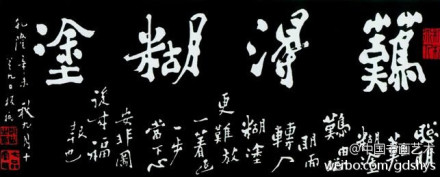 難得糊塗
聰明難
糊塗
難由聰
明而
轉入
糊塗
更難放
一着退
一步
當下心
安非圖
後来福
報也
乾隆辛未秋九月十
九日板橋
@中国书画艺术
weibo.com/gdshys